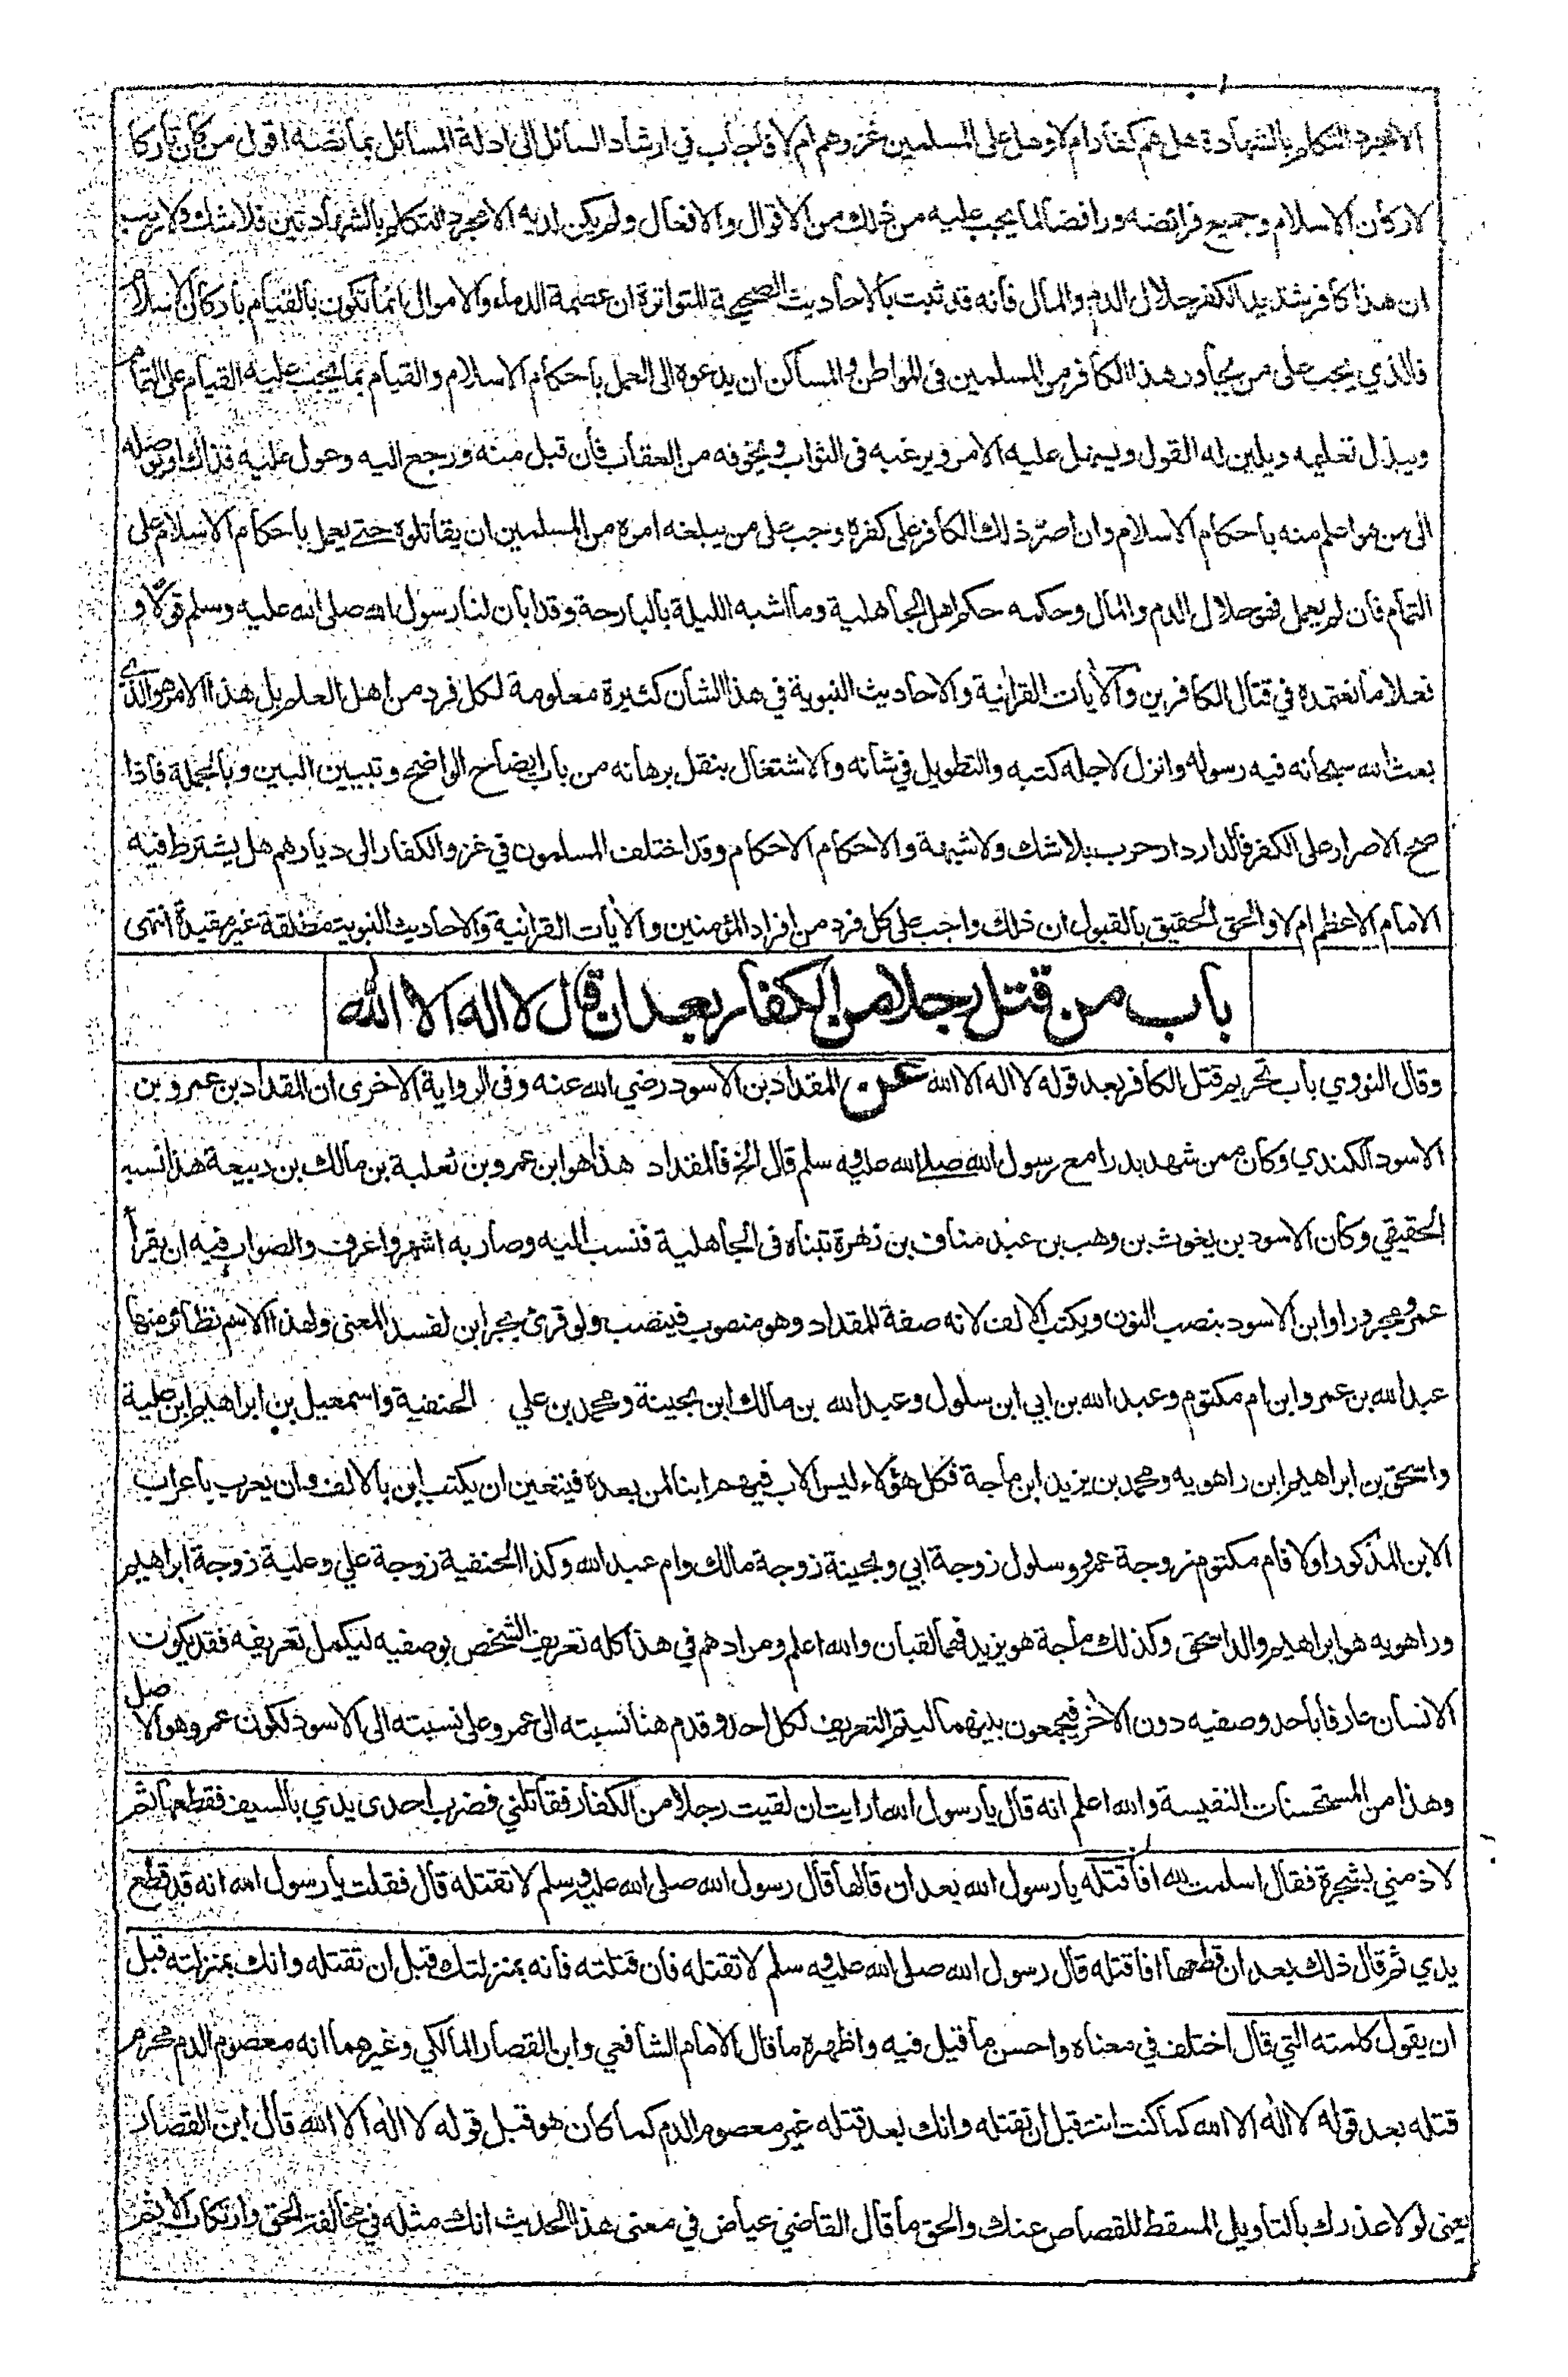 الا مجرد التكلم بالشهادة هل هم كفار ام لا وهل على المسلمين غزوهم ام لا فاجاب في ارشاد السائل الى ادلة المسائل بما نصه اقول من كان تاركا
لاركان الاسلام وجميع فرائضه ورافضا لما يجب عليه من ذلك من الاقوال والافعال ولم يكن لديه الا مجرد التكلم بالشهادتين فلا شك ولا ريب
ان هذا كافر شديد الكفر حلال الدم والمال فانه قد ثبت بالاحاديث الصحيحة المتواترة ان عصمة الدماء والاموال انما تكون بالقيام باركان الاسلام
فالذي يجب على من يجاور هذا الكافر من المسلمين فى المواطن والمساكن ان يدعوه الى العمل باحكام الاسلام والقيام بما يجب عليه القيام على التمام
ويبذل تعليمه ويلين له القول ويسهل عليه الامر ويرغبه فى الثواب ويخوفه من العقاب فان قبل منه ورجع اليه وعول عليه فذاك او يوصله
الى من هو اعلم منه باحكام الاسلام وان اصر ذلك الكافر على كفره وجب على من يبلغه امره من المسلمين ان يقاتلوه حتى يعمل باحكام الاسلام على
التمام فان لم يعمل فهو حلال الدم والمال وحكمه حكم اهل الجاهلية وما اشبه الليلة بالبارحة وقد ابان لنا رسول الله صلى الله عليه وسلم قولا و
فعلا ما نعتمده في قتال الكافرين والايات القرانية والاحاديث النبوية في هذا الشان كثيرة معلومة لكل فرد من اهل العلم بل هذا الامر هو الذي
بعث الله سبحانه فيه رسوله وانزل لاجله كتبه والتطويل في شانه والاشتغال بنقل برهانه من باب ايضاح الواضح وتبيين البين وبالجملة فاذا
صح الاصرار على الكفر فالدار دار حرب بلا شك ولا شبهة والاحكام الاحكام وقد اختلف المسلمون في غزو الكفار الى ديارهم هل يشترط فيه
الامام الاعظم ام لا والحق الحقيق بالقبول ان ذلك واجب على كل فرد من افراد المؤمنين والايات القرانية والاحاديث النبوية مطلقة غير مقيدة انتهى
باب من قتل رجلا من الكفار بعد ان قال لا اله الا الله
وقال النووي باب تحريم قتل الكافر بعد قوله لا اله الا الله عن المقداد بن الاسود رضي الله عنه وفى الرواية الاخرى ان المقداد بن عمرو بن
الاسود الكندي وكان ممن شهد بدرا مع رسول الله صلى الله عليه وسلم قال الخ فالمقداد هذا هو ابن عمرو بن ثعلبة بن مالك بن ربيعة هذا نسبه
الحقيقي وكان الاسود بن يغوث بن وهب بن عبد مناف بن زهرة تبناه فى الجاهلية فنسب اليه وصار به اشهر واعرف والصواب فيه ان يقرأ
عمرو مجرورا وابن الاسود بنصب النون ويكتب بالالف لانه صفة للمقداد وهو منصوب فينصب ولو قرئ بجر ابن لفسد المعنى ولهذا الاسم نظائر منها
عبد الله بن عمرو ابن ام مكتوم وعبد الله بن ابي ابن سلول وعبد الله بن مالك ابن بحينة ومحمد بن علي الحنفية واسمعيل بن ابراهيم ابن علية
واسحق بن ابراهيم ابن راهويه ومحمد بن يزيد ابن ماجة فكل هؤلاء ليس الاب فيهم ابنا لمن بعده فيتعين ان يكتب ابن بالالف وان يعرب باعراب
الابن المذكور اولا فام مكتوم زوجة عمرو وسلول زوجة ابي وبحينة زوجة مالك وام عبد الله وكذا الحنفية زوجة علي وعلية زوجة ابراهيم
وراهويه هو ابراهيم والد اسحق وكذلك ماجة هو يزيد فهما لقبان والله اعلم ومرادهم في هذا كله تعريف الشخص بوصفيه ليكمل تعريفه فقد يكون
الانسان عارفا باحد وصفيه دون الاخر فيجمعون بينهما ليتم التعريف لكل احد وقدم هنا نسبته الى عمرو على نسبته الى الاسود لكون عمرو هو الاصل
وهذا من المستحسنات النفيسة والله اعلم انه قال يا رسول الله ارايت ان لقيت رجلا من الكفار فقاتلني فضرب احدى يدي بالسيف فقطعها ثم
لاذ مني بشجرة فقال اسلمت لله افاقتله يا رسول الله بعد ان قالها قال رسول الله صلى الله عليه وسلم لا تقتله قال فقلت يا رسول الله انه قد قطع
يدي ثم قال ذلك بعد ان قطعها افاقتله قال رسول الله صلى الله عليه وسلم لا تقتله فان قتلته فانه بمنزلتك قبل ان تقتله وانك بمنزلته قبل
ان يقول كلمته التي قال اختلف في معناه واحسن ما قيل فيه واظهره ما قال الامام الشافعي وابن القصار المالكي وغيرهما انه معصوم الدم محرم
قتله بعد قوله لا اله الا الله كما كنت انت قبل ان تقتله وانك بعد قتله غير معصوم الدم كما كان هو قبل قوله لا اله الا الله قال ابن القصار
يعنى لولا عذرك بالتاويل المسقط للقصاص عنك والحق ما قال القاضي عياض في معنى هذا الحديث انك مثله في مخالفة الحق وارتكاب الاثم